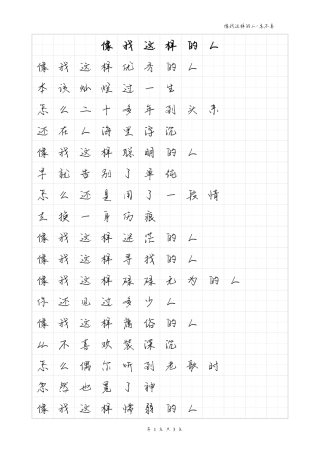 像我这样的人-毛不易
像我这样的人
像我这样优秀的人
本该灿烂过一生
怎么二十多年到头来
还在人海里浮沉
像我这样聪明的人
早就告别了单纯
怎么还是用了一段情
去换一身伤痕
像我这样迷茫的人
像我这样寻找的人
像我这样碌碌无为的人
你还见过多少人
像我这样庸俗的人
从不喜欢装深沉
怎么偶尔听到老歌时
忽然也晃了神
像我这样懦弱的人
第 1 页 共 3 页